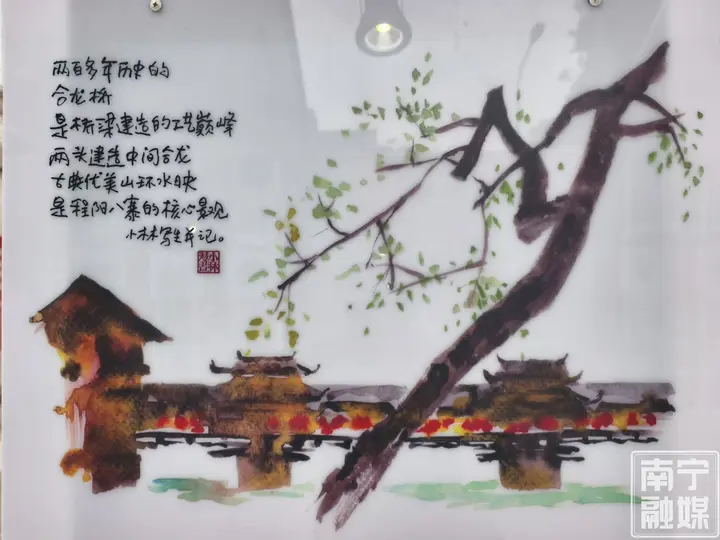 两百多年历史的
合龙桥
是桥梁建造的工艺巅峰
两头建造中间合龙
古典优美山环水映
是程阳八寨的核心景观
小林写生并记。
南宁
融媒